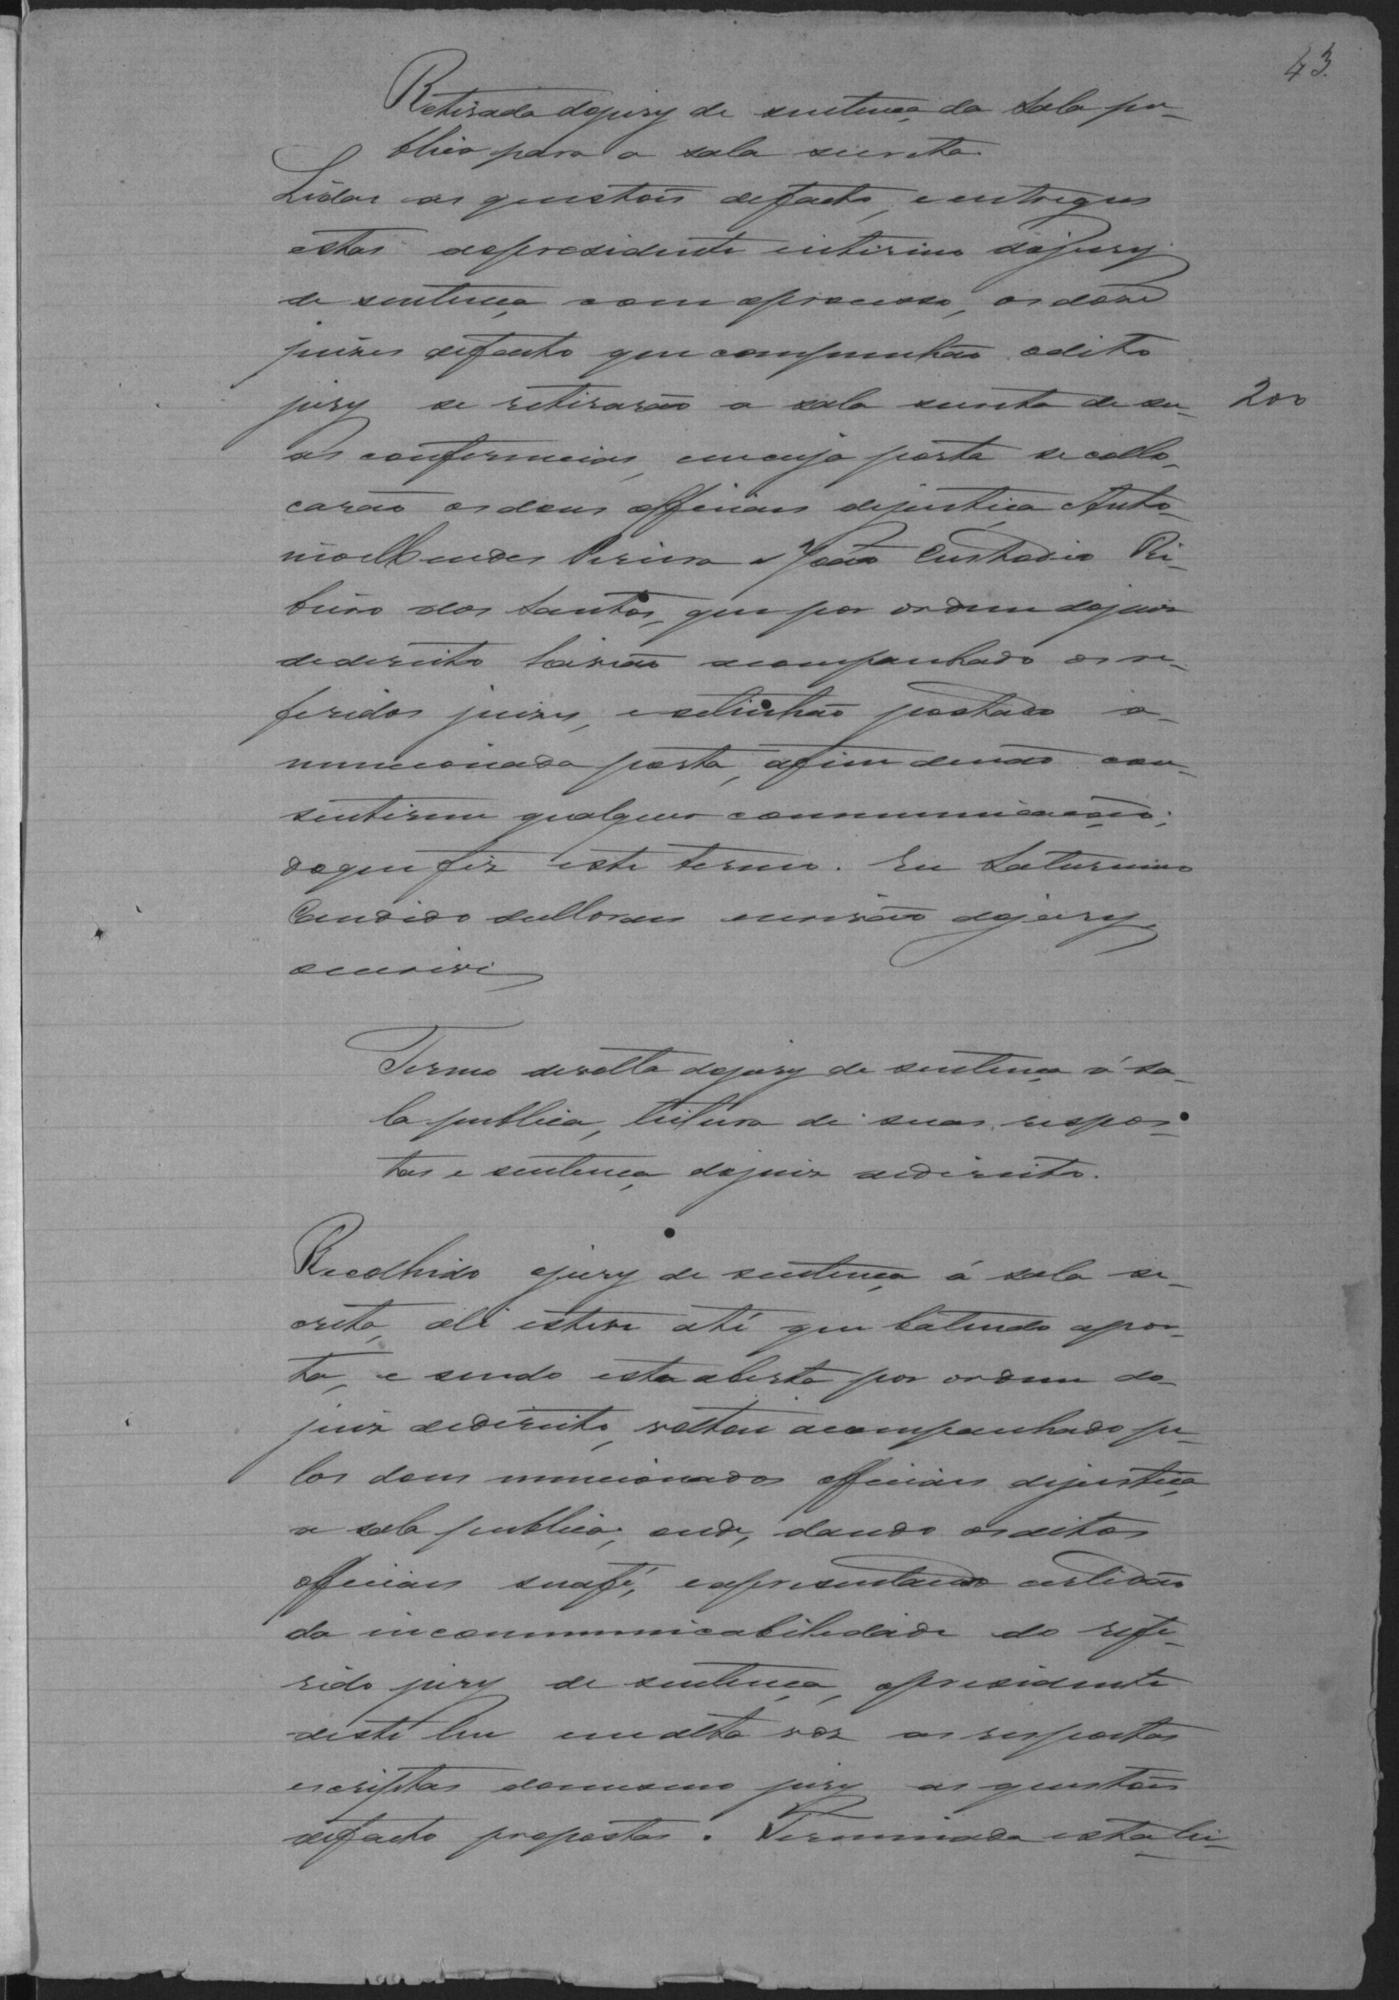 43.
Retirada do jury de sentença da sala pu-
blica para a sala secreta.
Lidas as questões de facto, e entregues
estas ao presidente interino do jury
de sentença com o processo, os doze
juizes de facto que compunhão o dito
jury se retirarão a sala secreta de su-
200
as conferencias, em cuja porta se collo-
carão os dous officiaes de justiça Anto-
nio Mendes Pereira e João Custodio Ri-
beiro dos Santos, que por ordem do juiz
de direito havião acompanhado os re-
feridos juizes, e se tinhão postado a
mencionada porta, afim de não con-
sentirem qualquer communicação;
do que fiz este termo. Eu Saturnino
Candido escrivão do jury
o escrevi
Termo de volta do jury de sentença á sa-
la publica, leitura de suas respos-
tas e sentença do juiz de direito.
Recolhido o jury de sentença á sala se-
creta, ali esteve até que batendo a por-
ta, e sendo esta aberta por ordem do
juiz de direito, voltou acompanhado pe-
los dous mencionados officiaes de justiça
a sala publica; onde, dando os ditos
officiaes sua fé, e apresentando certidão
da incommunicabilidade do refe-
rido jury de sentença, o presidente
deste leu em alta voz as respostas
escriptas do mesmo jury as questões
de facto propostas. Terminada esta lei-